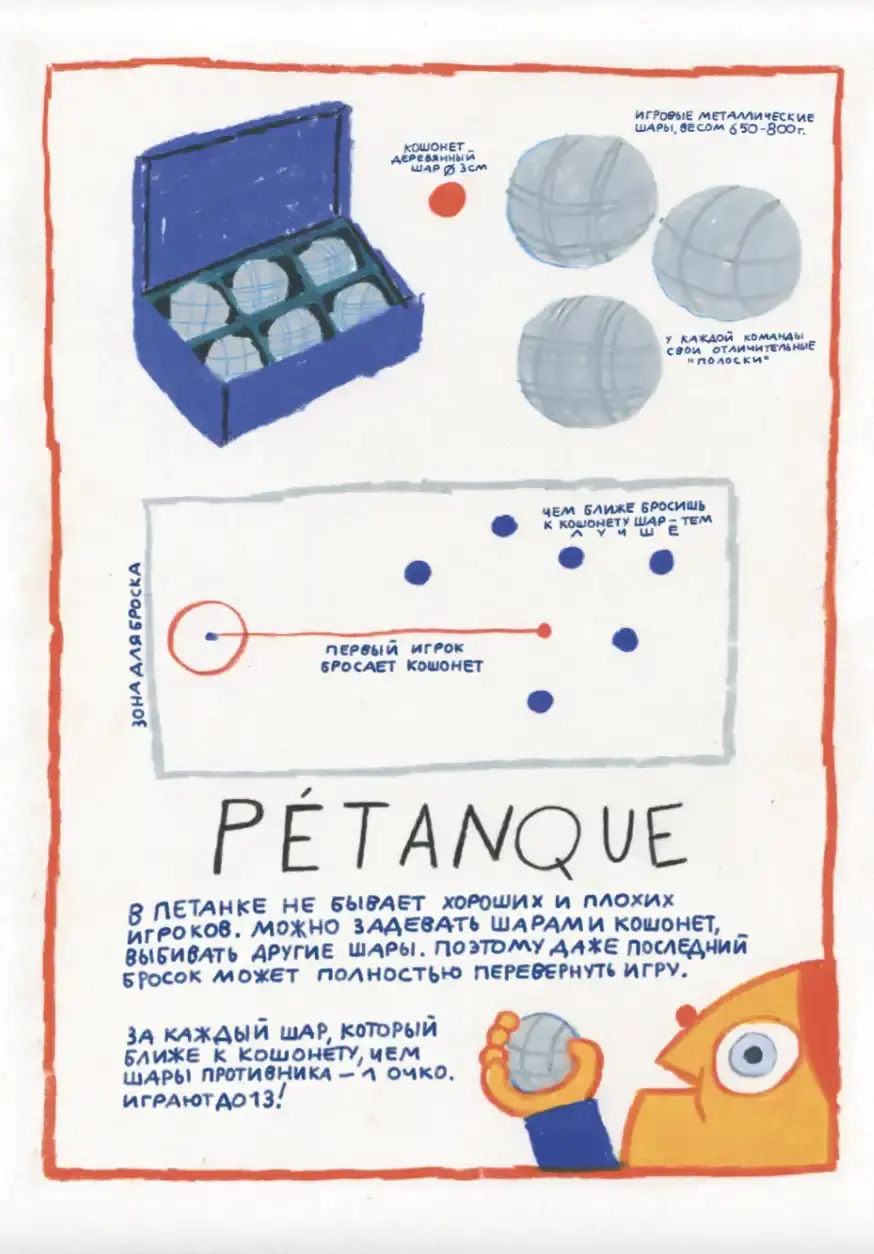 КОШОНЕТ
ДЕРЕВЯННЫЙ
ШАР Ø 3СМ
ИГРОВЫЕ МЕТАЛЛИЧЕСКИЕ
ШАРЫ, ВЕСОМ 650-800г.
У КАЖДОЙ КОМАНДЫ
СВОИ ОТЛИЧИТЕЛЬНЫЕ
"ПОЛОСКИ"
ЧЕМ БЛИЖЕ БРОСИШЬ
К КОШОНЕТУ ШАР – ТЕМ
ЛУЧШЕ
ЗОНА ДЛЯ БРОСКА
ПЕРВЫЙ ИГРОК
БРОСАЕТ КОШОНЕТ
PÉTANQUE
В ПЕТАНКЕ НЕ БЫВАЕТ ХОРОШИХ И ПЛОХИХ
ИГРОКОВ. МОЖНО ЗАДЕВАТЬ ШАРАМИ КОШОНЕТ,
ВЫБИВАТЬ ДРУГИЕ ШАРЫ. ПОЭТОМУ ДАЖЕ ПОСЛЕДНИЙ
БРОСОК МОЖЕТ ПОЛНОСТЬЮ ПЕРЕВЕРНУТЬ ИГРУ.
ЗА КАЖДЫЙ ШАР, КОТОРЫЙ
БЛИЖЕ К КОШОНЕТУ, ЧЕМ
ШАРЫ ПРОТИВНИКА – 1 ОЧКО.
ИГРАЮТ ДО 13!